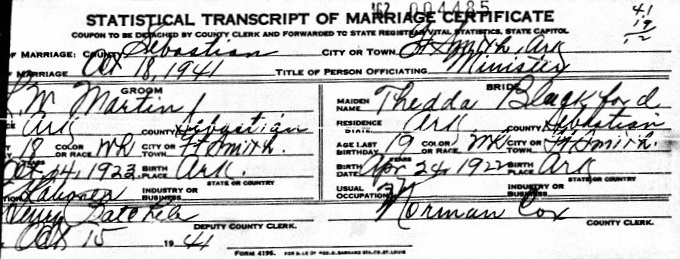 162 004485
STATISTICAL TRANSCRIPT OF MARRIAGE CERTIFICATE
COUPON TO BE DETACHED BY COUNTY CLERK AND FORWARDED TO STATE REGISTRAR VITAL STATISTICS, STATE CAPITOL
41
19
12
OF MARRIAGE: COUNTY Sebastian CITY OR TOWN Ft Smith, Ark
OF MARRIAGE Oct 18, 1941 TITLE OF PERSON OFFICIATING Minister
GROOM BRIDE
W. Martin MAIDEN NAME Thedda Blackford
Ark COUNTY Sebastian RESIDENCE STATE Ark COUNTY Sebastian
18 COLOR OR RACE Wh CITY OR TOWN Ft Smith. AGE LAST BIRTHDAY 19 YEARS COLOR OR RACE Wh CITY OR TOWN Ft Smith.
Oct 24, 1923 BIRTH PLACE Ark. STATE OR COUNTRY BIRTH DATE Apr 24, 1922 BIRTH PLACE Ark STATE OR COUNTRY
Laborer INDUSTRY OR BUSINESS USUAL OCCUPATION INDUSTRY OR BUSINESS
DEPUTY COUNTY CLERK. Norman Cox COUNTY CLERK.
Oct 15 1941
FORM 4196.